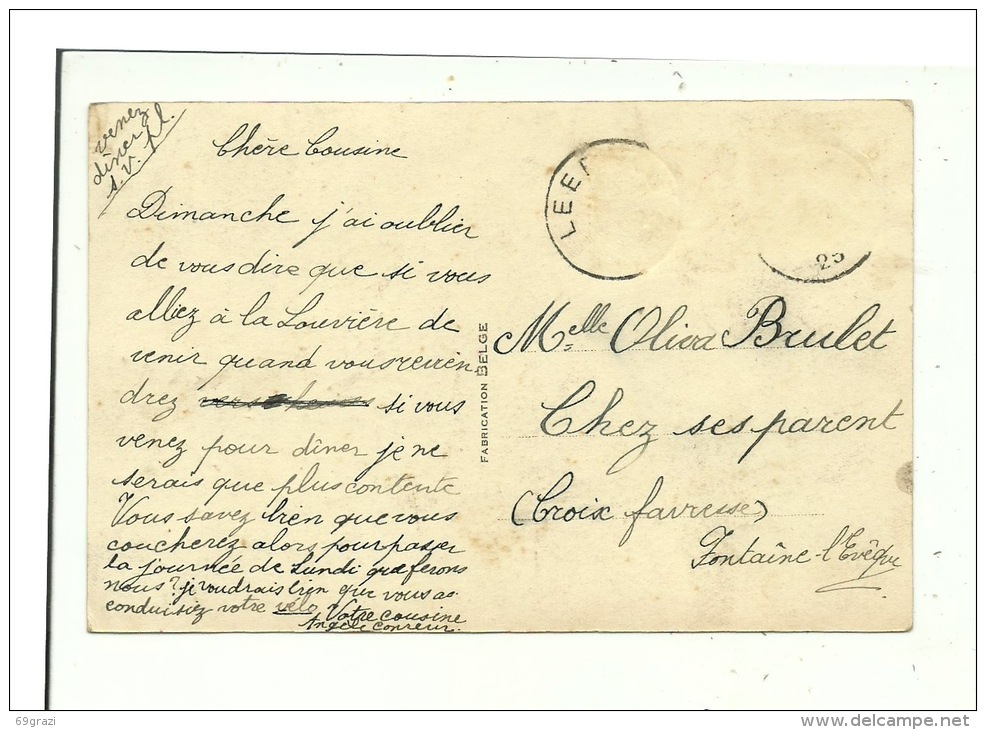 venez
dîner
s.v.pl.
Chère Cousine
Dimanche j'ai oublier
de vous dire que si vous
alliez à la Louvière de
venir quand vous revien
drez si vous
venez pour dîner je ne
serais que plus contente
Vous savez bien que vous
coucherez alors pour passer
la journée de Lundi que ferons
nous? je voudrais bien que vous as
conduisiez votre vélo Votre cousine
Angèle
FABRICATION BELGE
LEER
25
Melle Oliva Brulet
Chez ses parent
(Croix favresse)
Fontaîne-l'Evêque
69grazi
delcampe.net